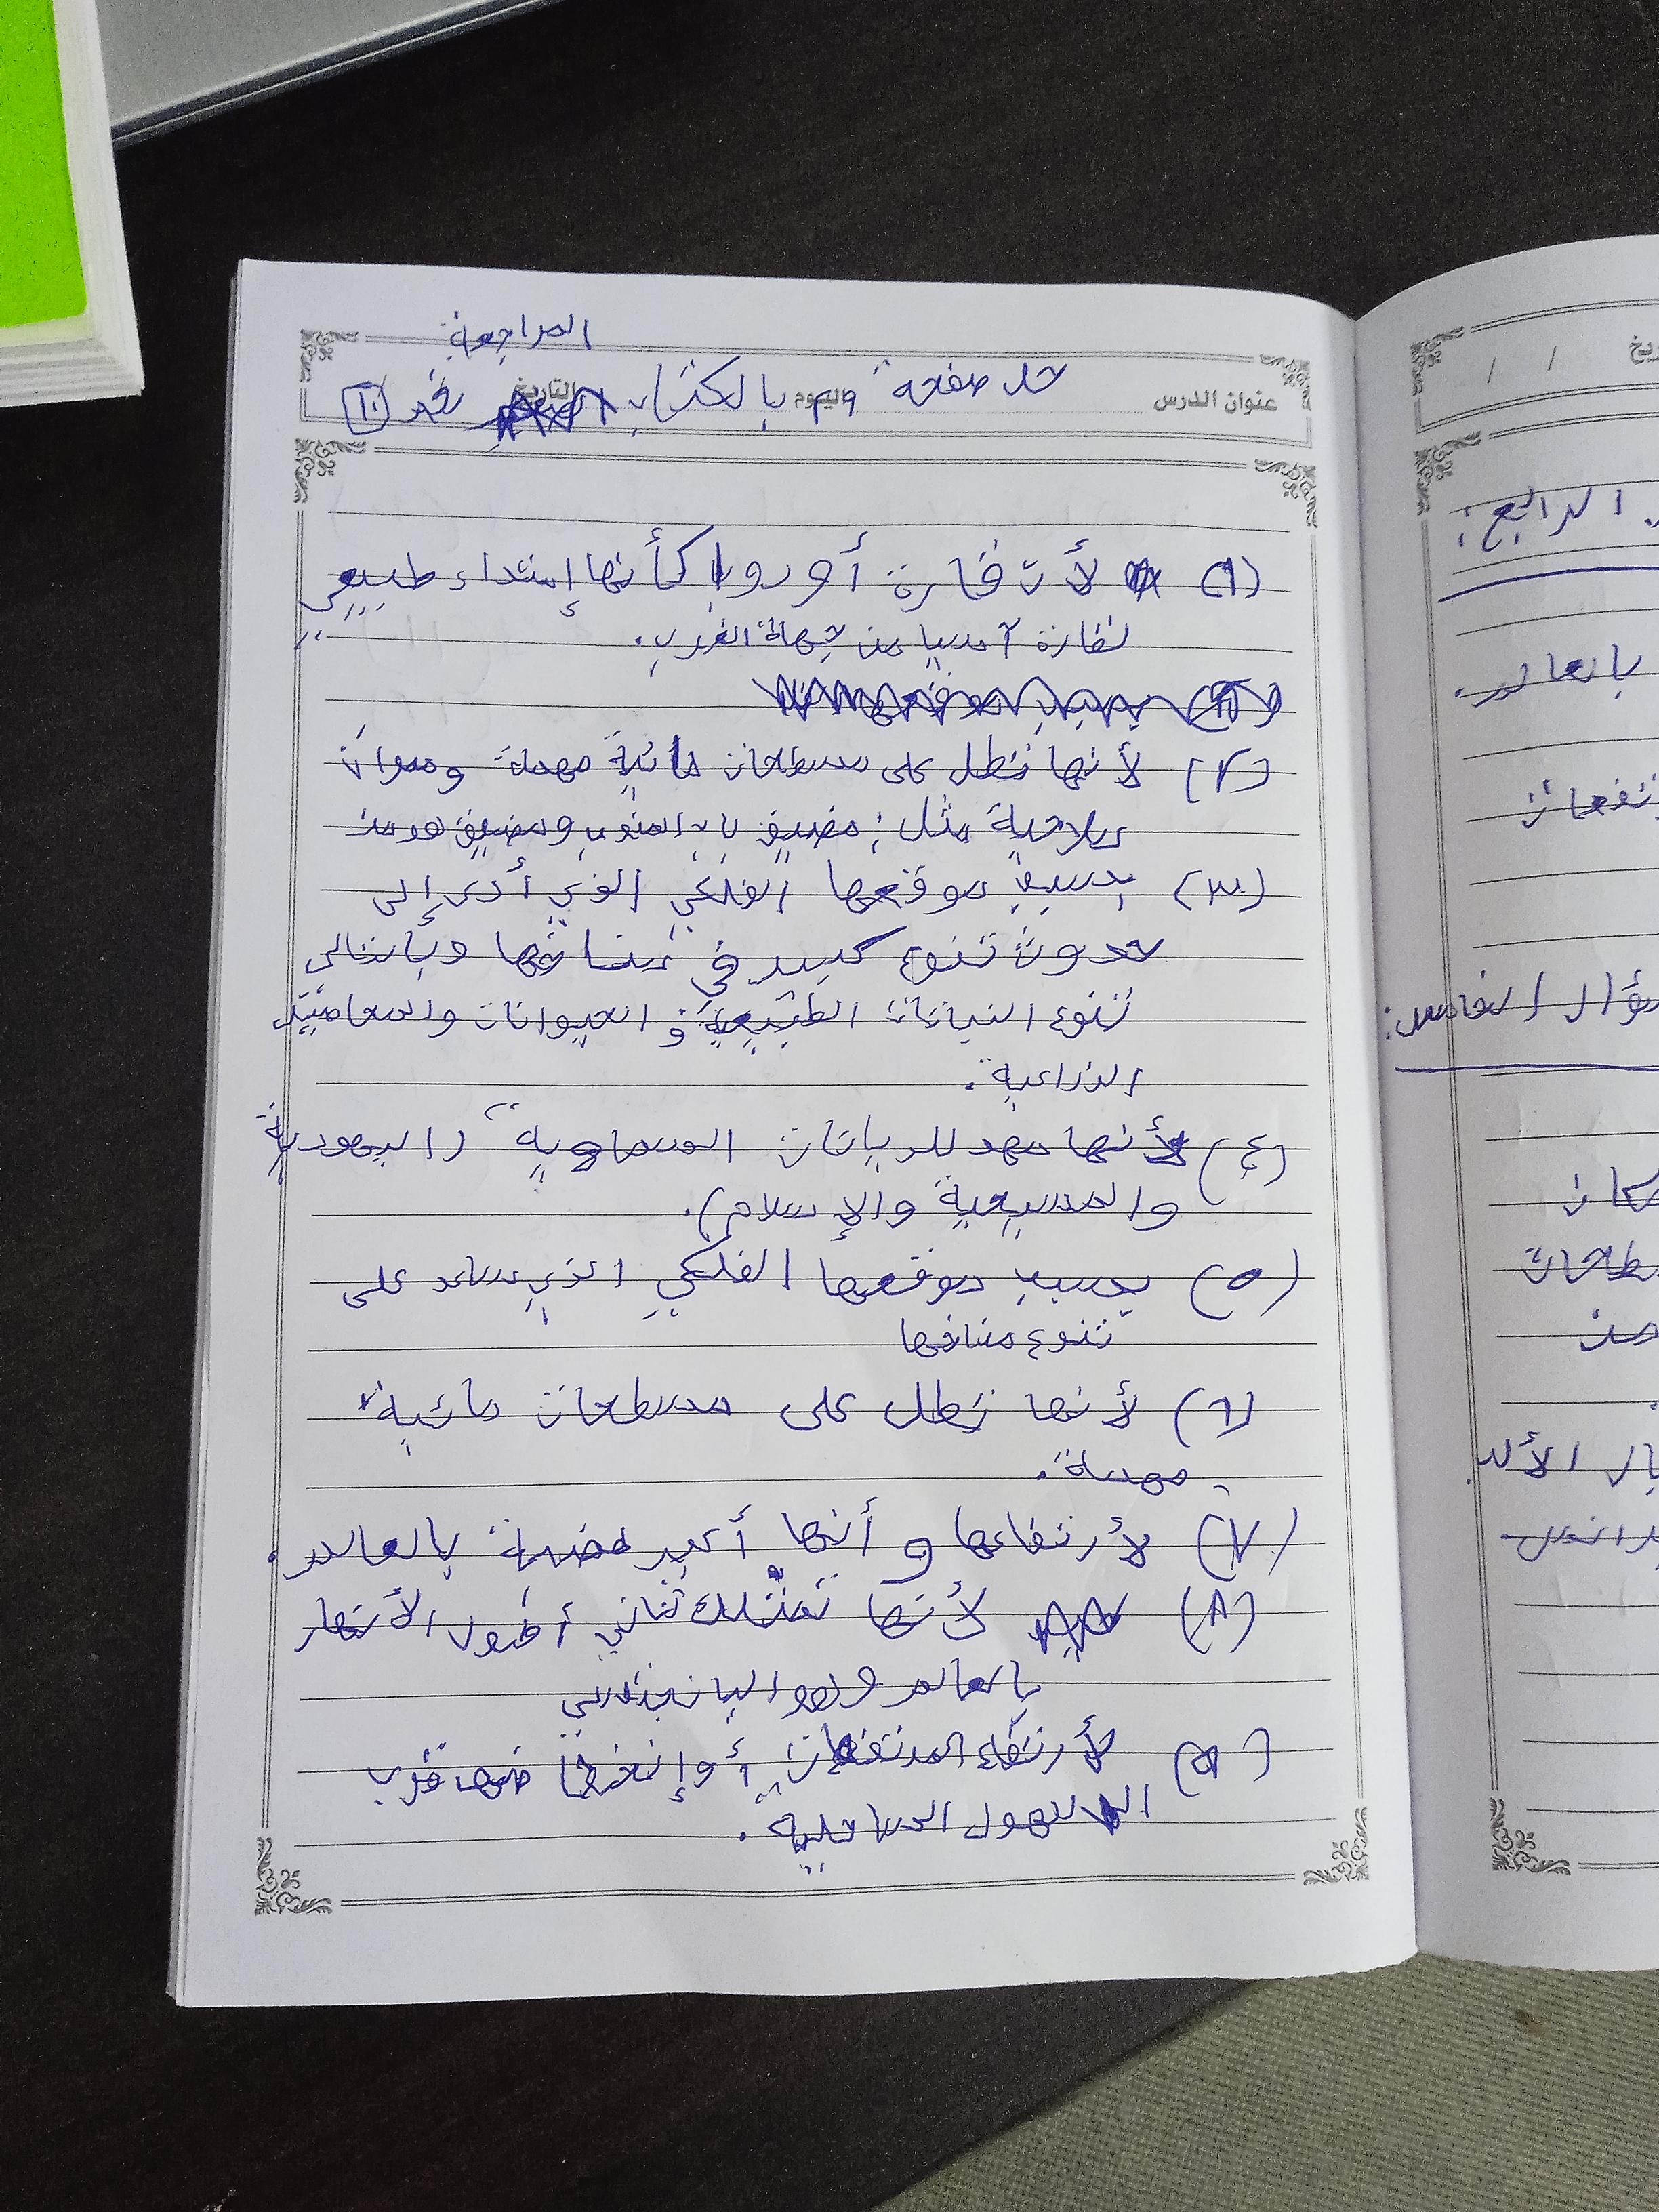 المراجعة
حل صفحة ٣٩ بالكتاب رقم ١٠
عنوان الدرس
اليوم
التاريخ
(١) لأن قارة أوروبا كأنها إمتداد طبيعي
لقارة آسيا من جهة الغرب.
(٢) لأنها تطل على مسطحات مائية مهمة وممرات
ملاحية مثل: مضيق باب المندب ومضيق هرمز
(٣) بسبب موقعها الفلكي الذي أدى إلى
حدوث تنوع كبير في مناخها وبالتالي
تنوع النباتات الطبيعية و الحيوانات والمحاصيل
الزراعية.
(٤) لأنها مهد للديانات السماوية (اليهودية
والمسيحية والإسلام).
(٥) بسبب موقعها الفلكي الذي ساعد على
تنوع مناخها
(٦) لأنها تطل على مسطحات مائية
مهمة.
(٧) لأرتفاعها و أنها أكبر هضبة بالعالم.
(٨) لأنها تمتلك ثاني أطول الأنهار
بالعالم وهو اليانجتسي
(٩) لأرتفاع المرتفعات أو إنخفاضها قرب
السهول الساحلية.
الرابع:
بالعالم.
السؤال الخامس: